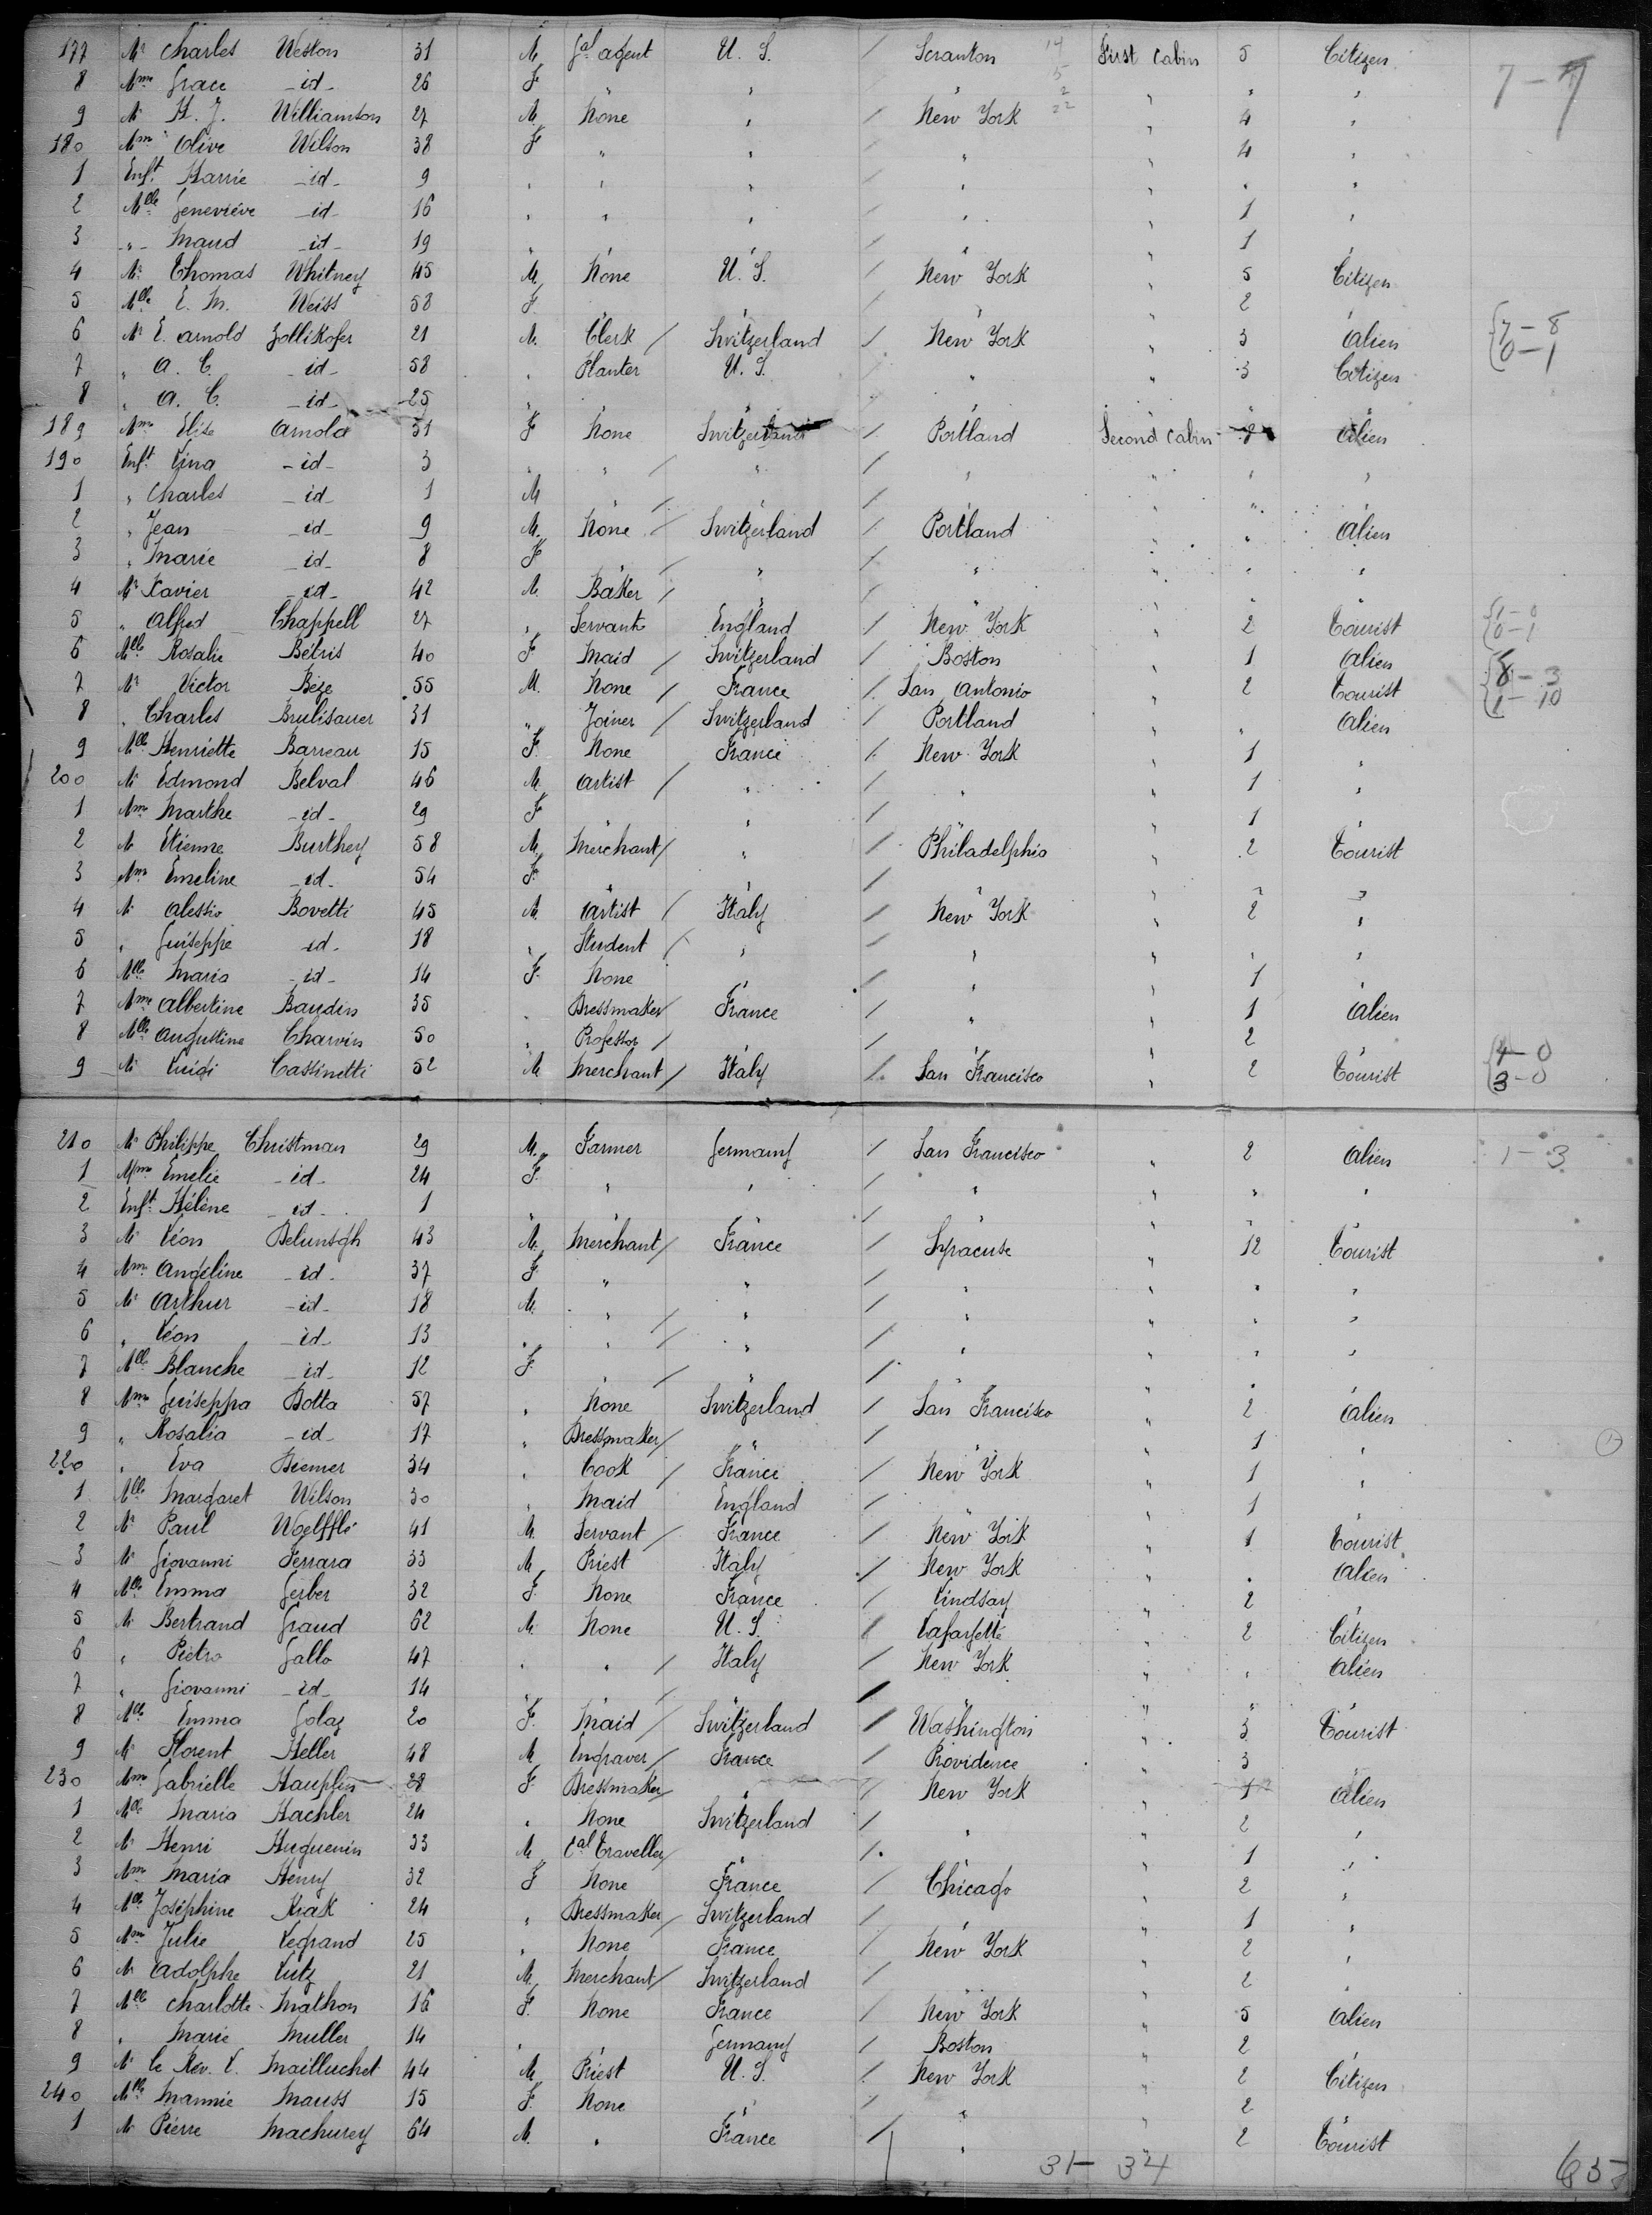 177 Mr Charles Weston 31 M Gal agent U. S. / Scranton 14 First Cabin 5 Citizen 7-7
8 Mme Grace -id- 26 F " " / " 5 " " "
9 Mr H. J. Williamson 27 M. None " / New York 22 " 4 "
180 Mme Olive Wilson 38 F " " / " " 4 "
1 Enft. Harrie -id- 9 " " " / " " " "
2 Mlle Geneviève -id- 16 " " " / " " 1 "
3 -"- Maud -id- 19 " " " / " " 1 "
4 Mr Thomas Whitney 45 M. None U. S. / New York " 5 Citizen
5 Mlle E. M. Weiss 58 F " " / " " 2 "
6 Mr E. Arnold Zollikofer 21 M. Clerk / Switzerland / New York " 3 Alien 7-8
7 " A. C. -id- 58 " Planter U. S. / " " 3 Citizen 0-1
8 " A. C. -id- 25 " " " / " " " "
189 Mme Elise Arnold 31 F None Switzerland / Portland Second Cabin 8 Alien
190 Enft Lina -id- 3 " " / " / " " " "
1 " Charles -id- 1 M " / " / " " " "
2 " Jean -id- 9 M. None / Switzerland / Portland " " Alien
3 " Marie -id- 8 F " / " / " " " "
4 Mr Xavier -id- 42 M. Baker / " / " " " "
5 " Alfred Chappell 27 " Servant England / New York " 2 Tourist 1-0 0-1
6 Mlle Rosalie Bétris 40 F Maid / Switzerland / Boston " 1 Alien
7 Mr Victor Bèze 55 M. None / France / San Antonio " 2 Tourist 8-3 1-10
8 " Charles Brulisauer 31 " Joiner / Switzerland / Portland " " Alien
9 Mlle Henriette Barreau 15 F None France / New York " 1 "
200 Mr Edmond Belval 46 M. Artist / " / " " 1 "
1 Mme Marthe -id- 29 F " " / " " 1 "
2 Mr Etienne Burthey 58 M. Merchant / " / Philadelphia " 2 Tourist
3 Mme Emeline -id- 54 F. " " / " " " "
4 Mr Alessio Bovetti 45 M Artist / Italy / New York " 2 "
5 " Guiseppe id- 18 " Student / " / " " " "
6 Mlle Maria -id- 14 F. None " / " " 1 "
7 Mme Albertine Baudin 35 " Dressmaker / France / " " 1 Alien
8 Mlle Augustine Charvin 50 " Professor / " / " " 2 "
9 Mr Luigi Cassinetti 52 M Merchant / Italy / San Francisco " 2 Tourist 4-0 3-0
210 Mr Philippe Christman 29 M. Farmer Germany / San Francisco " 2 Alien 1-3
1 Mme Emelie -id- 24 F. " " / " " " "
2 Enft. Hélène -id- 1 " " " / " " " "
3 Mr Léon Delunsgh 43 M. Merchant / France / Syracuse " 12 Tourist
4 Mme Angéline -id- 37 F " " / " " " "
5 Mr Arthur -id- 18 M. " / " / " " " "
6 " Léon -id- 13 " " / " / " " " "
7 Mlle Blanche -id- 12 F. " / " / " " " "
8 Mme Guiseppa Dotta 57 " None Switzerland / San Francisco " 2 Alien
9 " Rosalia -id- 17 " Dressmaker / " / " " 1 "
220 " Eva Diemer 34 " Cook / France / New York " 1 "
1 Mlle Margaret Wilson 30 " Maid England / " " 1 "
2 Mr Paul Woelfflé 41 M. Servant / France / New York " 1 Tourist
3 Mr Giovanni Ferrara 33 M. Priest Italy / New York " " Alien
4 Mlle Emma Gerber 32 F. None France / Lindsay " 2 "
5 Mr Bertrand Graud 62 M. None U. S. / Lafayette " 2 Citizen
6 " Pietro Gallo 47 " " / Italy / New York " " Alien
7 " Giovanni -id- 14 " " / " / " " " "
8 Mlle Emma Golaz 20 F. Maid / Switzerland / Washington " 3 Tourist
9 Mr Florent Heller 48 M. Engraver / France / Providence " 3 "
230 Mme Gabrielle Hauplin 28 F. Dressmaker / " / New York " 1 Alien
1 Mlle Maria Hachler 24 " None Switzerland / " " 2 "
2 Mr Henri Huguenin 33 M Cal Traveller / " / " " 1 "
3 Mme Maria Henry 32 F None France / Chicago " 2 "
4 Mlle Joséphine Krak 24 " Dressmaker / Switzerland / " " 1 "
5 Mme Julie Legrand 25 " None France / New York " 2 "
6 Mr Adolphe Lutz 21 M. Merchant / Switzerland / " " 2 "
7 Mlle Charlotte Mathon 16 F. None France / New York " 5 Alien
8 " Marie Muller 14 " " Germany / Boston " 2 "
9 Mr le Rev. L. Mailluchet 44 M. Priest U. S. / New York " 2 Citizen
240 Mlle Mannie Mauss 15 F. None " / " " 2 "
1 Mr Pierre Machurey 64 M. " France / " " 2 Tourist
31-34